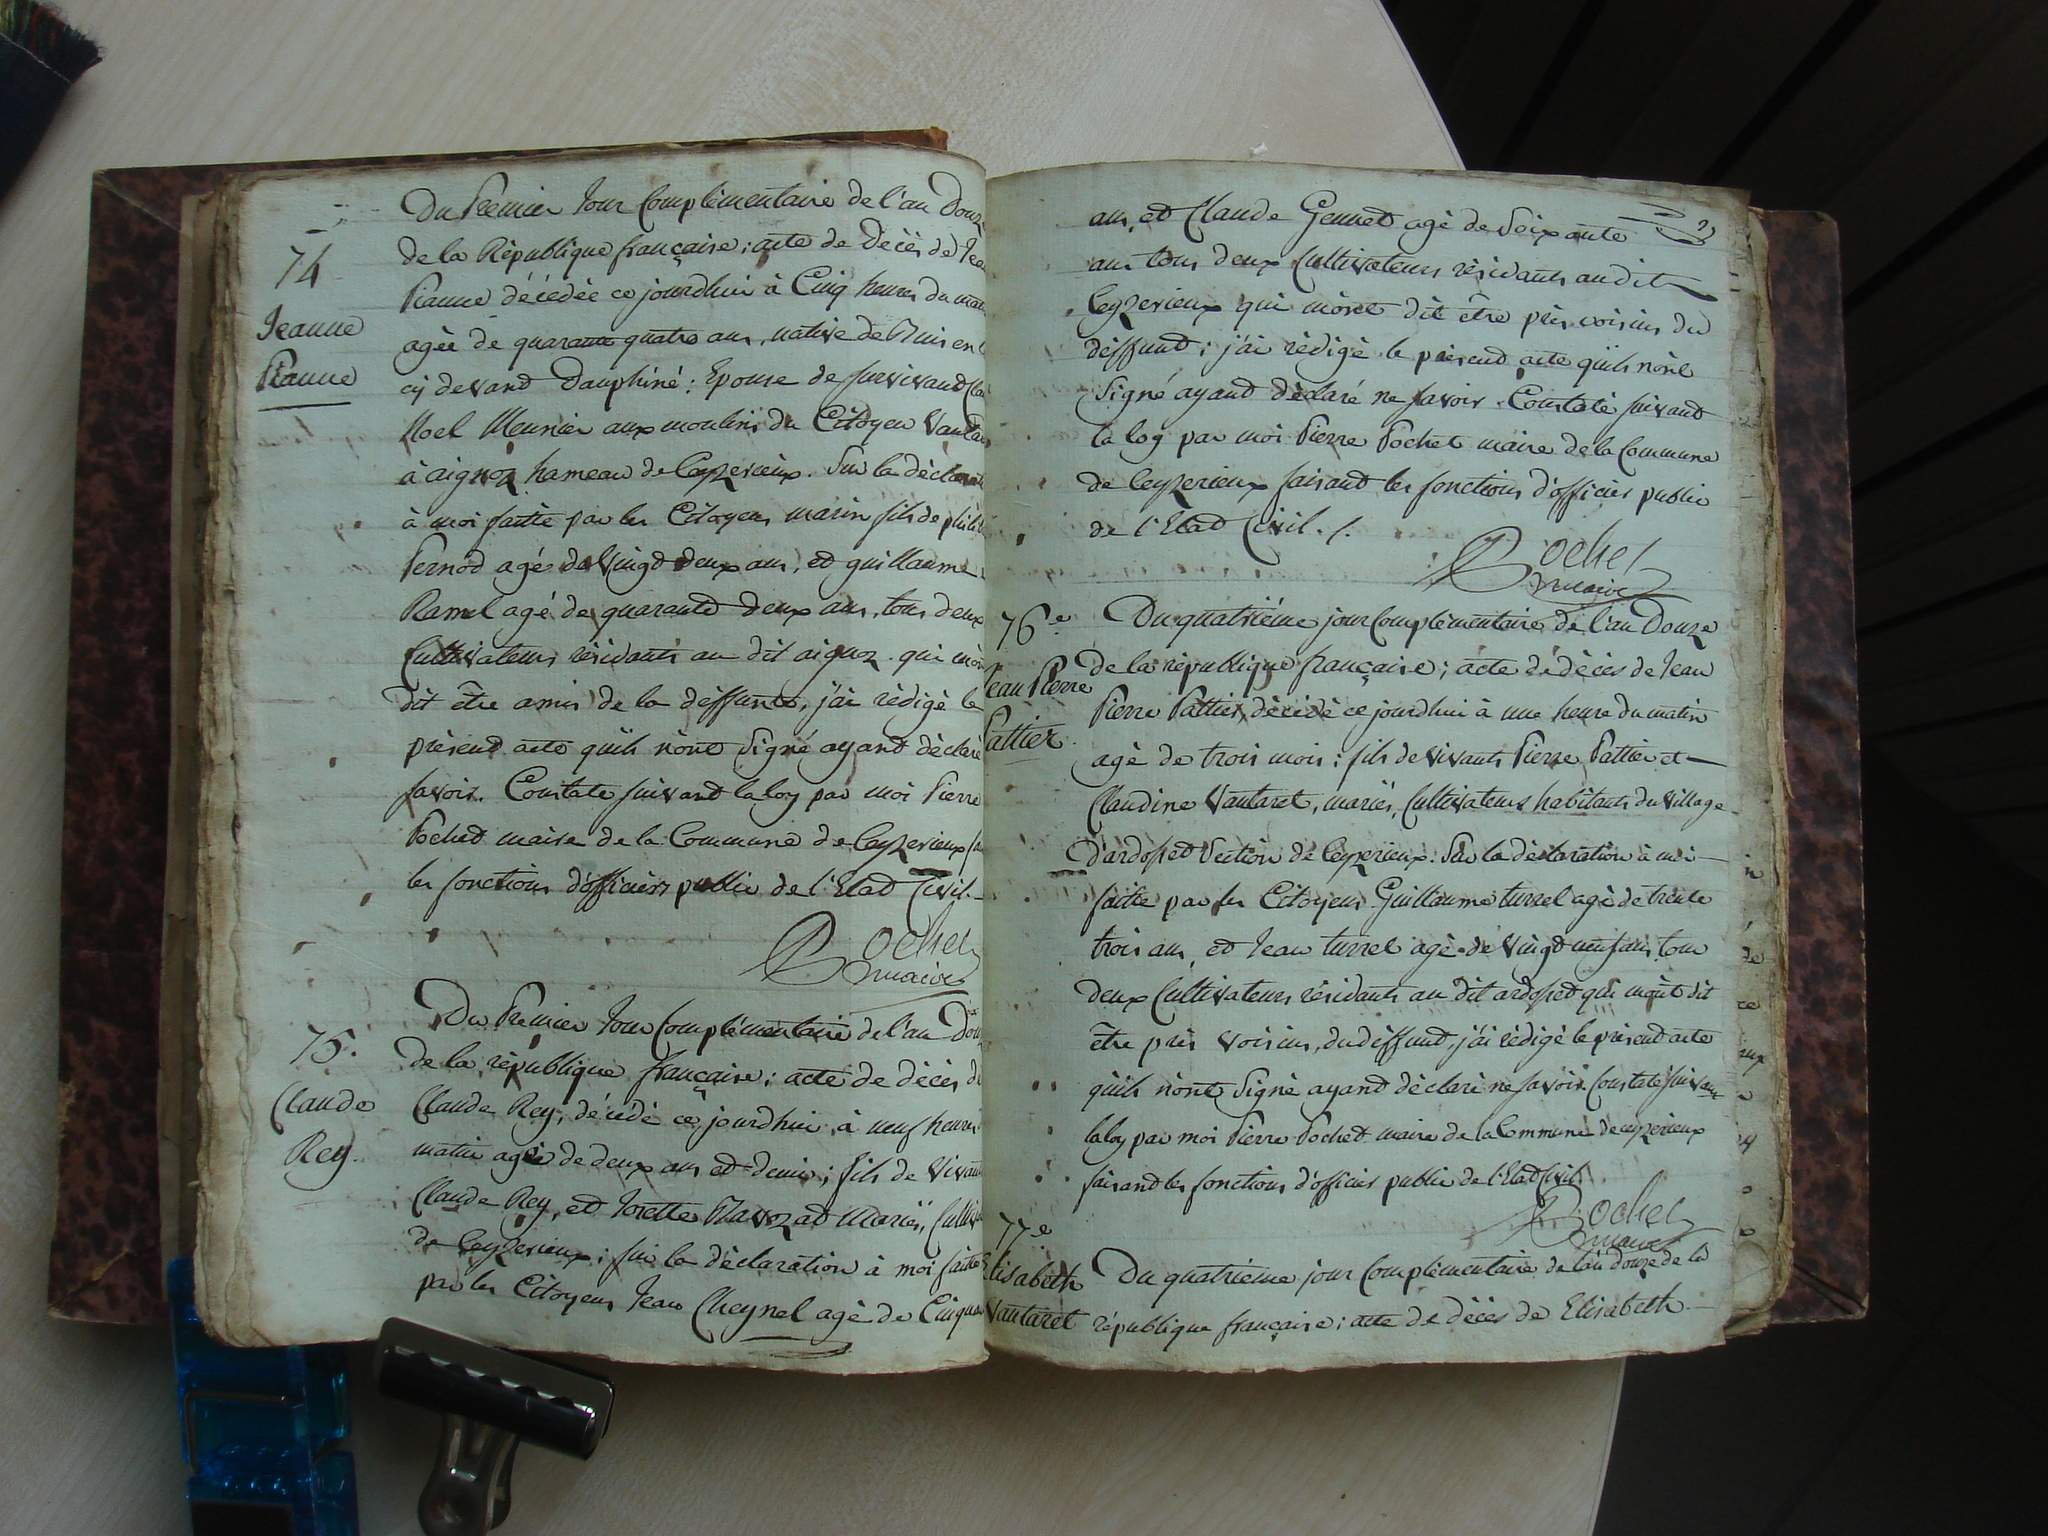 74
Jeanne
Pianne
Du Premier Jour Complémentaire de l'an Douze
de la République française; acte de Décès de Jea
Pianne décédée ce jourdhui à Cinq heures du mat
agée de quarante quatre ans, native de
cy devant Dauphiné: Epouse de survivant Cla
Noel Meunier aux moulins du Citoyen Vantar
à aignoz hameau de Ceyzerieux. Sur la déclarat
à moi faitte par les Citoyens marin fils de philib
Pernod agé de Vingt deux ans, et guillaume
Ramel agé de quarante deux ans, tous deux
Cultivateurs résidants au dit aignoz qui m'on
dit être amis de la deffunte, j'ai rédigé le
présent acte qu'ils n'ont Signé ayant déclaré
savoir. Constaté suivant la loy par moi Pierre
Pochet maire de la Commune de Ceyzerieux fa
les fonctions d'officier public de l'Etat Civil.
Pochet
maire
75.
Claude
Rey.
Du Premier Jour Complémentaire de l'an Dou
de la république française; acte de décès de
Claude Rey, décédé ce jourdhui à neuf heures
matin agé de deux ans et demi; fils de Vivant
Claude Rey, et Josette Mariés, Cultiv
de Ceyzerieux; sur la déclaration à moi faitte
par les Citoyens Jean Cheynel agé de Cinquan
ans, et Claude Gennet agé de Soixante
ans tous deux Cultivateurs résidants audit
Ceyzerieux qui m'ont dit être près voisins du
deffunt; j'ai rédigé le présent acte qu'ils n'ont
Signé ayant déclaré ne savoir. Constaté suivant
la loy par moi Pierre Pochet maire de la Commune
de Ceyzerieux faisant les fonctions d'officier public
de l'Etat Civil./.
Pochet
maire
76e
Jean Pierre
Pattier
Du quatriéme jour Complémentaire de l'an Douze
de la république française; acte de décès de Jean
Pierre Pattier décédé ce jourdhui à une heure du matin
agé de trois mois; fils de vivants Pierre Pattier et
Claudine Vantaret, mariés, Cultivateurs habitants du Village
D'ardosset Section de Ceyzerieux. Sur la déclaration à moi
faitte par les Citoyens Guillaume turrel agé de trente
trois ans, et Jean turrel agé de Vingt neuf ans, tous
deux Cultivateurs résidants au dit ardosset qui m'ont dit
être près voisins, du deffunt, j'ai rédigé le présent acte
qu'ils n'ont Signé ayant déclaré ne savoir. Constaté suivant
la loy par moi Pierre Pochet maire de la Commune de ceyzerieux
faisant les fonctions d'officier public de l'Etat Civil.
Pochet
maire
77e
Elisabeth
Vantaret
Du quatrieme jour Complémentaire de l'an douze de la
république française; acte de décès de Elisabeth